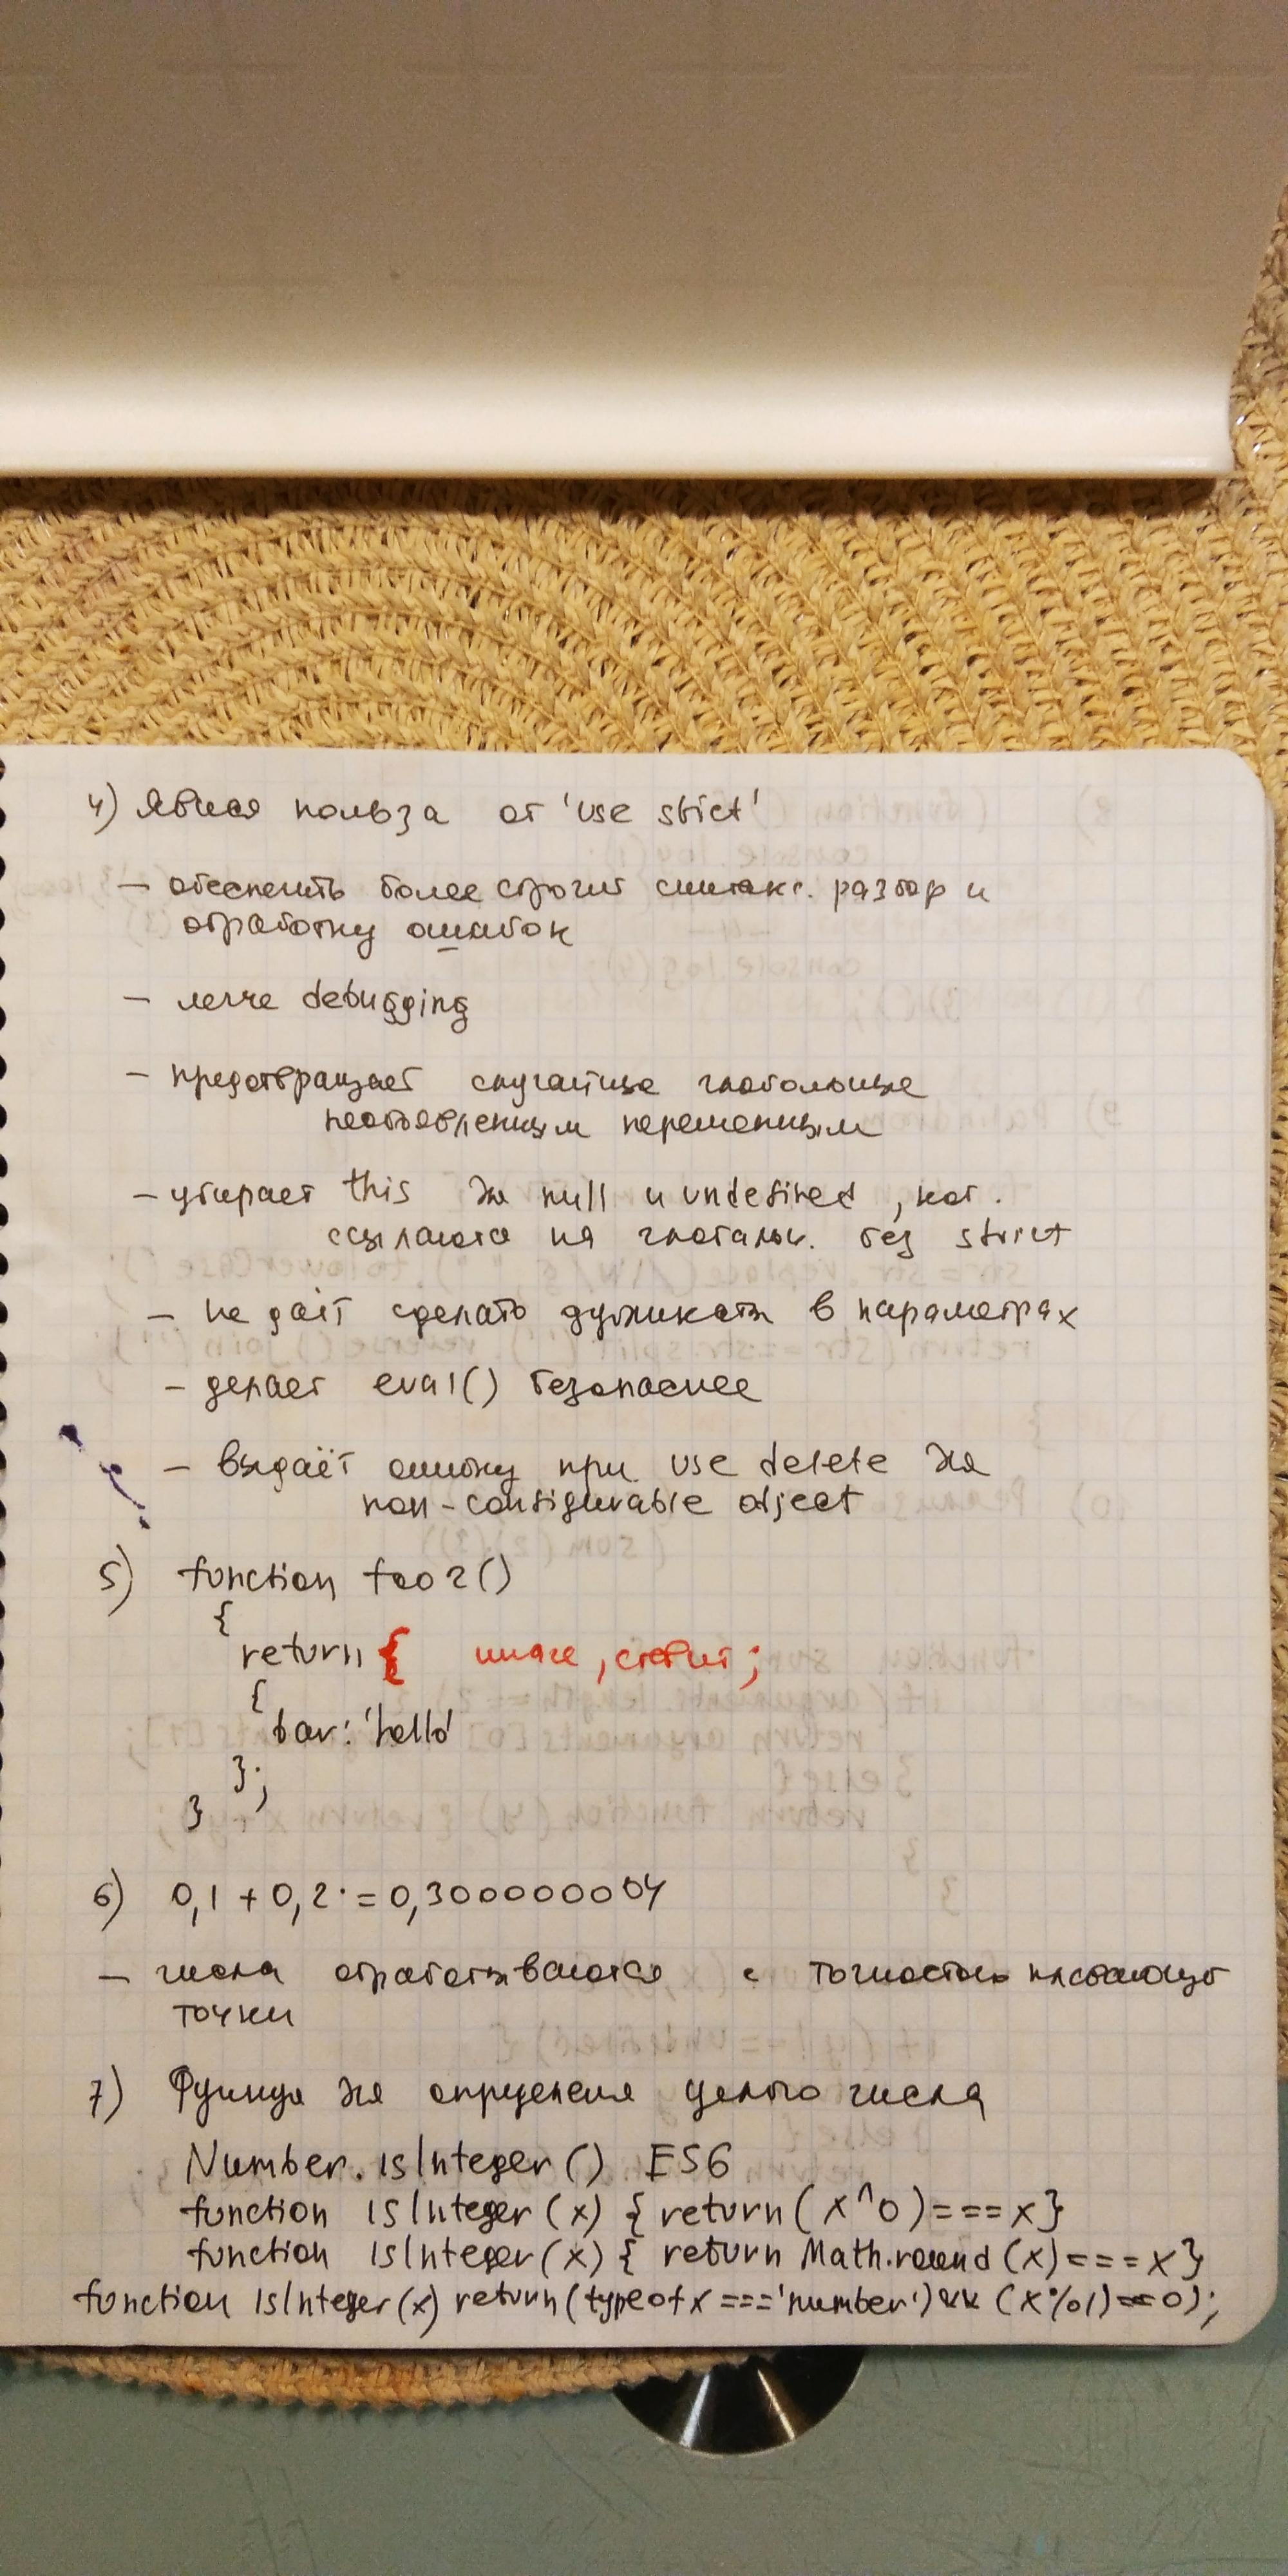 4) Явная польза от 'use strict'
— обеспечить более строгий синтакс. разбор и
обработку ошибок
— легче debugging
— предотвращает случайные глобальные
необъявленным переменным
— убирает this для null и undefined, кот.
ссылаются на глобальн. без strict
— не даёт сделать дубликаты в параметрах
— делает eval() безопаснее
— выдаёт ошибку при use delete для
non-configurable object
5) function foo2()
{
return { иначе, ставит ;
{
bar: 'hello'
};
}
6) 0,1 + 0,2 = 0,3000000004
— числа обрабатываются с точностью плавающей
точки
7) Функция для определения целого числа
Number.isInteger() ES6
function isInteger(x) { return (x^0)===x}
function isInteger(x) { return Math.round(x)===x}
function isInteger(x) return (typeof x === 'number') && (x%1)==0);